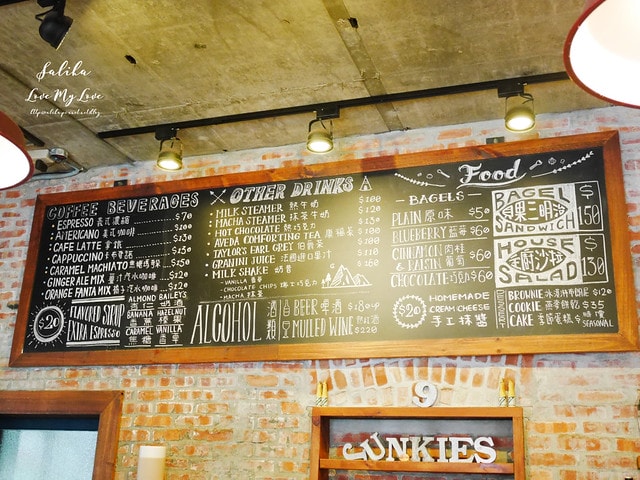 Saliha
Love My Love
COFFEE BEVERAGES
ESPRESSO 義式濃縮 $70
AMERICANO 美式咖啡
CAFE LATTE 拿鐵
CAPPUCCINO 卡布奇諾
CARAMEL MACHIATO 焦糖瑪朵
GINGER ALE MIX 薑汁汽水咖啡
ORANGE FANTA MIX 橘子汽水咖啡
$20
FLAVORED SYRUP
EXTRA ESPRESSO
ALMOND BAILEY'S
杏仁 奶酒
BANANA HAZELNUT
香蕉 榛果
CARAMEL VANILLA
焦糖 香草
OTHER DRINKS
MILK STEAMER 熱牛奶 $100
MACHA STEAMER 抹茶牛奶 $120
HOT CHOCOLATE 熱巧克力
AVEDA COMFORTING TEA
TAYLOR'S EARL GREY 伯爵茶
GRANINI JUICE 法國進口果汁
MILK SHAKE 奶昔
- VANILLA 香草
- CHOCOLATE CHIPS 瑞士巧克力
- MACHA 抹茶
ALCOHOL
酒
類
BEER 啤酒
MULLED WINE 熱紅酒 $220
Food
- BAGELS -
PLAIN 原味 $50
BLUEBERRY 藍莓 $60
CINNAMON 肉桂
& RAISIN 葡萄 $60
CHOCOLATE 巧克力 $60
$20
HOMEMADE
CREAM CHEESE
手工抹醬
BAGEL
貝果三明治
SANDWICH
$150
HOUSE
主廚沙拉
SALAD
$130
BROWNIE
COOKIE 燕麥餅乾 $35
CAKE 季節蛋糕 $ 時價
SEASONAL
9
JUNKIES